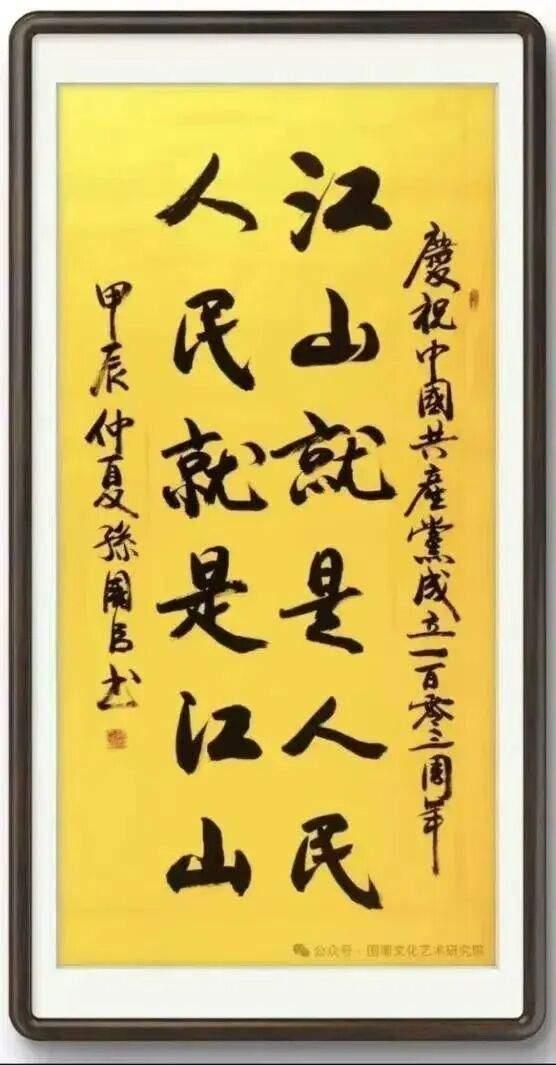 慶祝中國共產黨成立一百零三周年
江山就是人民
人民就是江山
甲辰仲夏孫國书
公众号·国文化艺术研究院